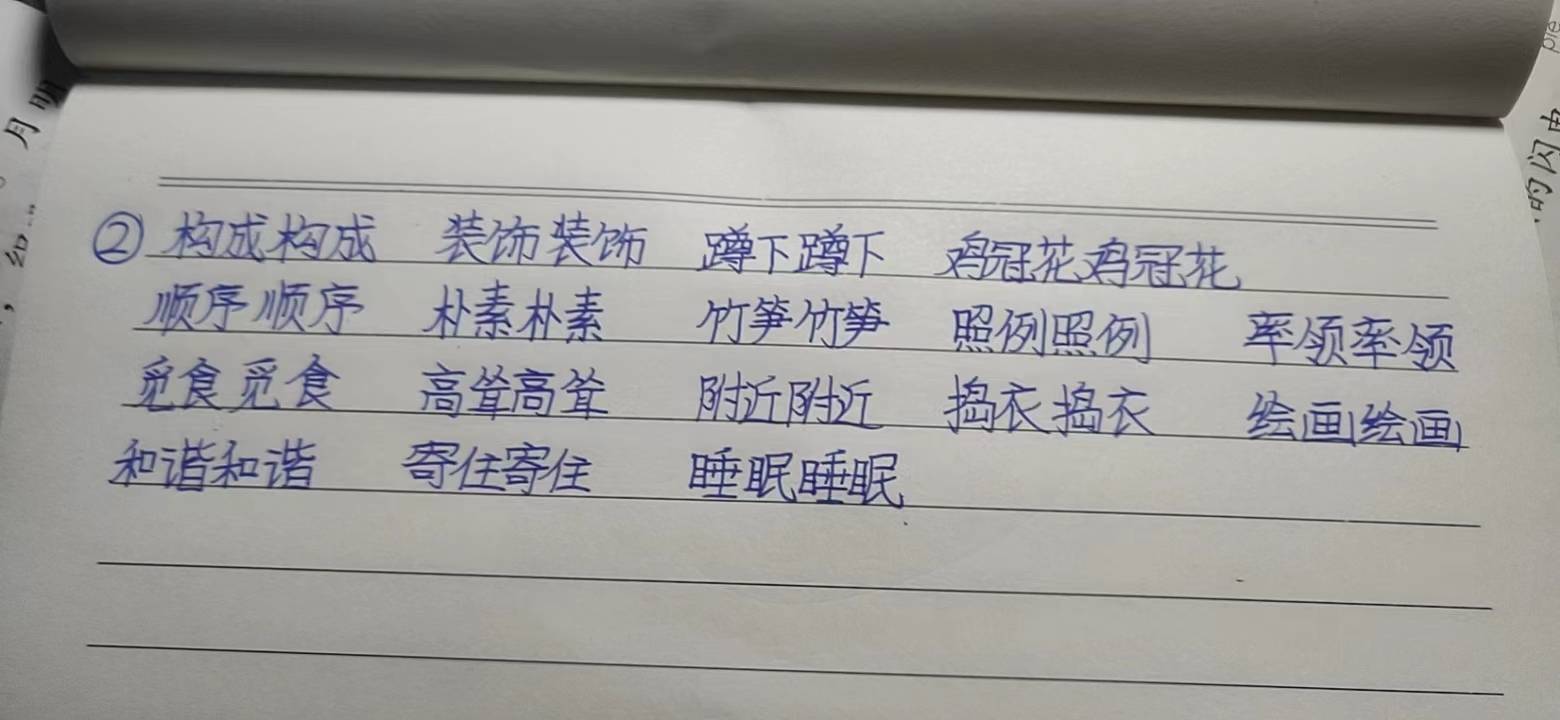 ②构成构成 装饰装饰 蹲下蹲下 鸡冠花鸡冠花
顺序顺序 朴素朴素 竹笋竹笋 照例照例 率领率领
觅食觅食 高耸高耸 附近附近 捣衣捣衣 绘画绘画
和谐和谐 寄住寄住 睡眠睡眠
月明
的闪电